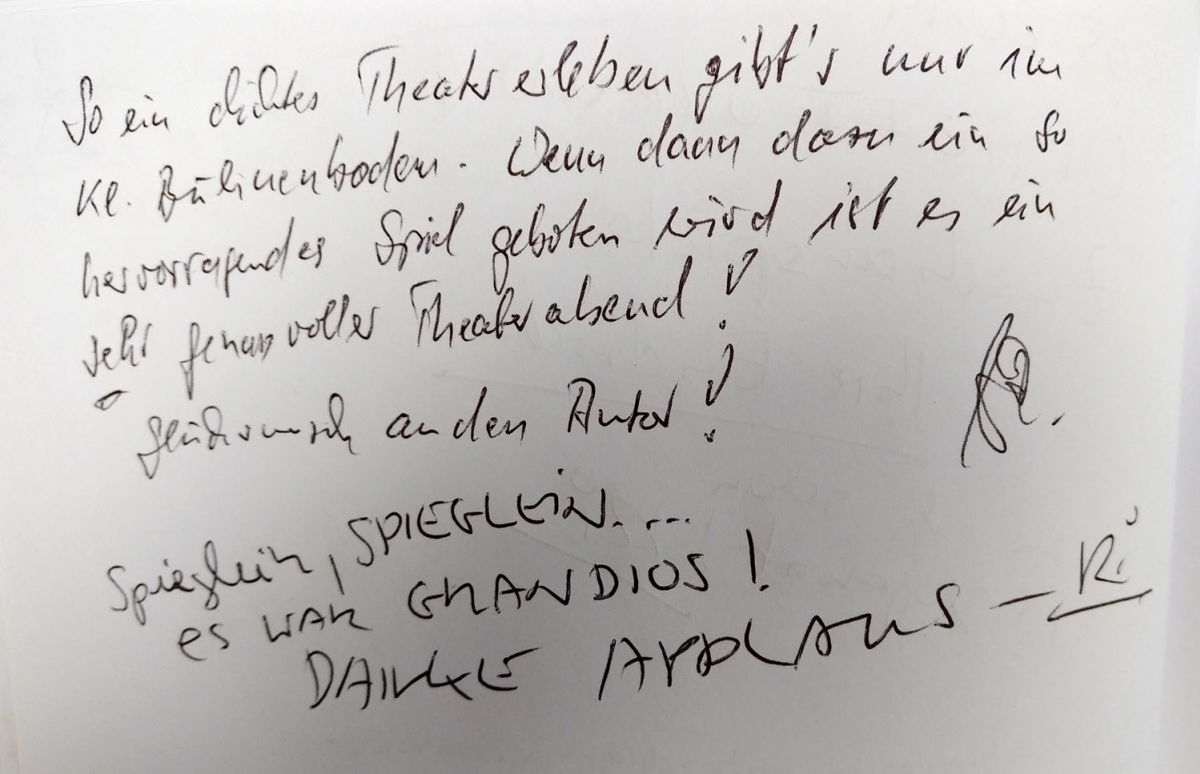 So ein dichtes Theatererleben gibt's nur im
Kl. Bühnenboden. Wenn dann dazu ein so
hervorragendes Spiel geboten wird ist es ein
sehr genussvoller Theaterabend!
Glückwunsch an den Autor!
Spieglein, SPIEGLEIN....
es WAR GRANDIOS!
DANKE APPLAUS –